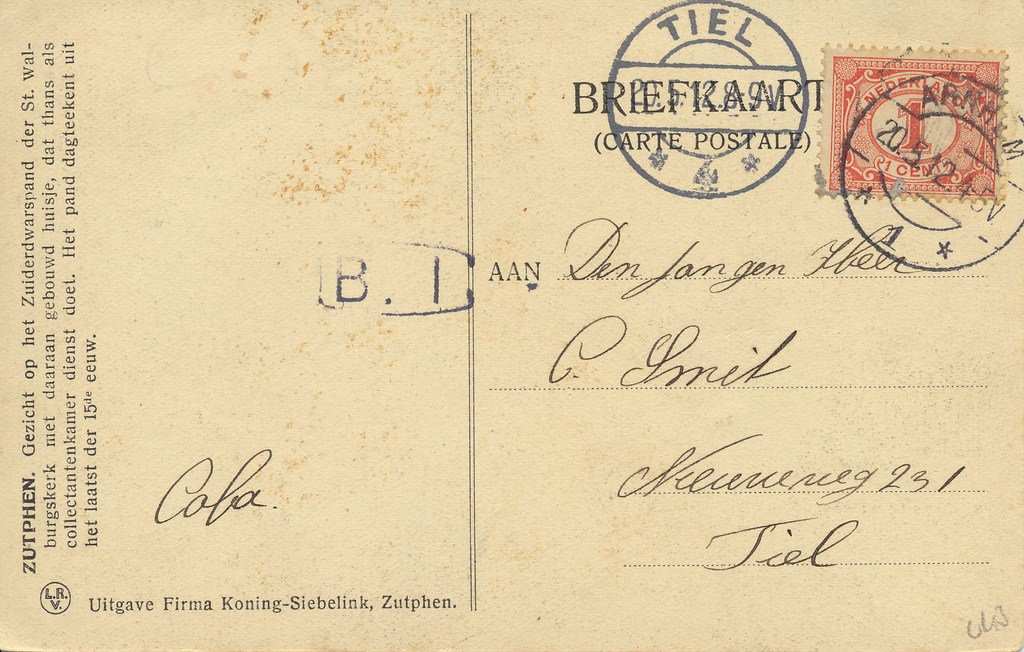 ZUTPHEN. Gezicht op het Zuiderdwarspand der St. Wal-
burgskerk met daaraan gebouwd huisje, dat thans als
collectantenkamer dienst doet. Het pand dagteekent uit
het laatst der 15de eeuw.
L.R.
V.
Uitgave Firma Koning-Siebelink, Zutphen.
Coba.
B. I
TIEL
20.5.12.8-9V
4
BRIEFKAART
(CARTE POSTALE)
NEDERLAND
1
1 CENT
ARNHEM
20.5.12.4-5V
1
AAN Den Jongen Heer
C. Smit
Nieuweweg 231
Tiel